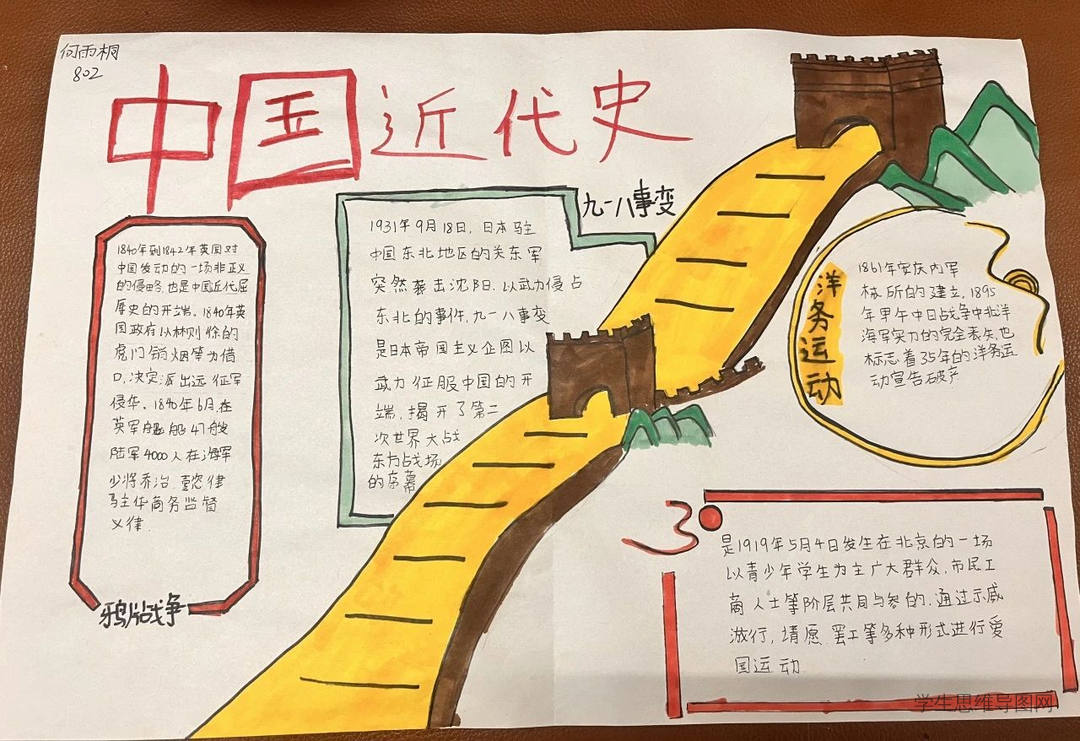 何雨桐
802
中国近代史
1840年到1842年英国对
中国发动的一场非正义
的侵略,也是中国近代屈
历史的开端。1840年英
国政府以林则徐的
虎门销烟等为借
口,决定派出远征军
侵华。1840年6月,在
英军舰船47艘
陆军4000人在海军
少将乔治 懿律
驻华商务监督
义律
鸦片战争
九一八事变
1931年9月18日,日本驻
中国东北地区的关东军
突然袭击沈阳,以武力侵占
东北的事件,九一八事变
是日本帝国主义企图以
武力征服中国的开
端,揭开了第二
次世界大战
东方战场
的序幕
洋务运动
1861年安庆内军
械所的建立,1895
年甲午中日战争中北洋
海军实力的完全丧失,也
标志着35年的洋务运
动宣告破产
3
是1919年5月4日发生在北京的一场
以青少年学生为主广大群众,市民工
商人士等阶层共同与参的,通过示威
游行,请愿 罢工等多种形式进行爱
国运动
学生思维导图网